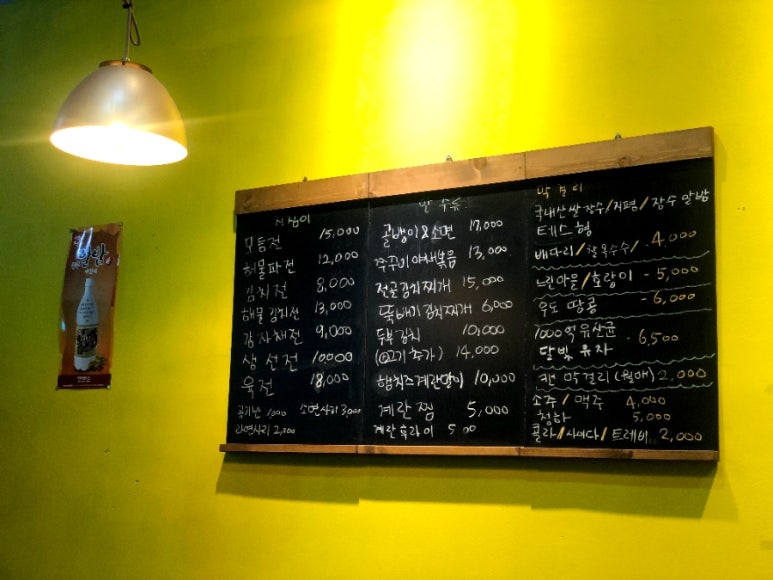 모듬전 15,000
해물파전 12,000
김치전 8,000
해물 김치전 13,000
감자채전 9,000
생선전 10000
육전 18,000
공기밥 1,000 소면사리 3,000
라면사리 2,000
안주류
골뱅이&소면 17,000
쭈꾸미야채볶음 13,000
전골김치찌개 15,000
뚝배기 김치찌개 6,000
두부김치 10,000
(고기 추가) 14,000
햄치즈계란말이 10,000
계란찜 5,000
계란 후라이 5 00
막걸리
국내산쌀 장수/지평/장수 알밤
테스형
배다리/찰옥수수/ - 4,000
느린마을/호랑이 - 5,000
우도 땅콩 - 6,000
1000억 유산균
달빛 유자 - 6,500
캔 막걸리 (월매) 2,000
소주 / 맥주 4,000
청하 5,000
콜라/사이다/트레비 2,000